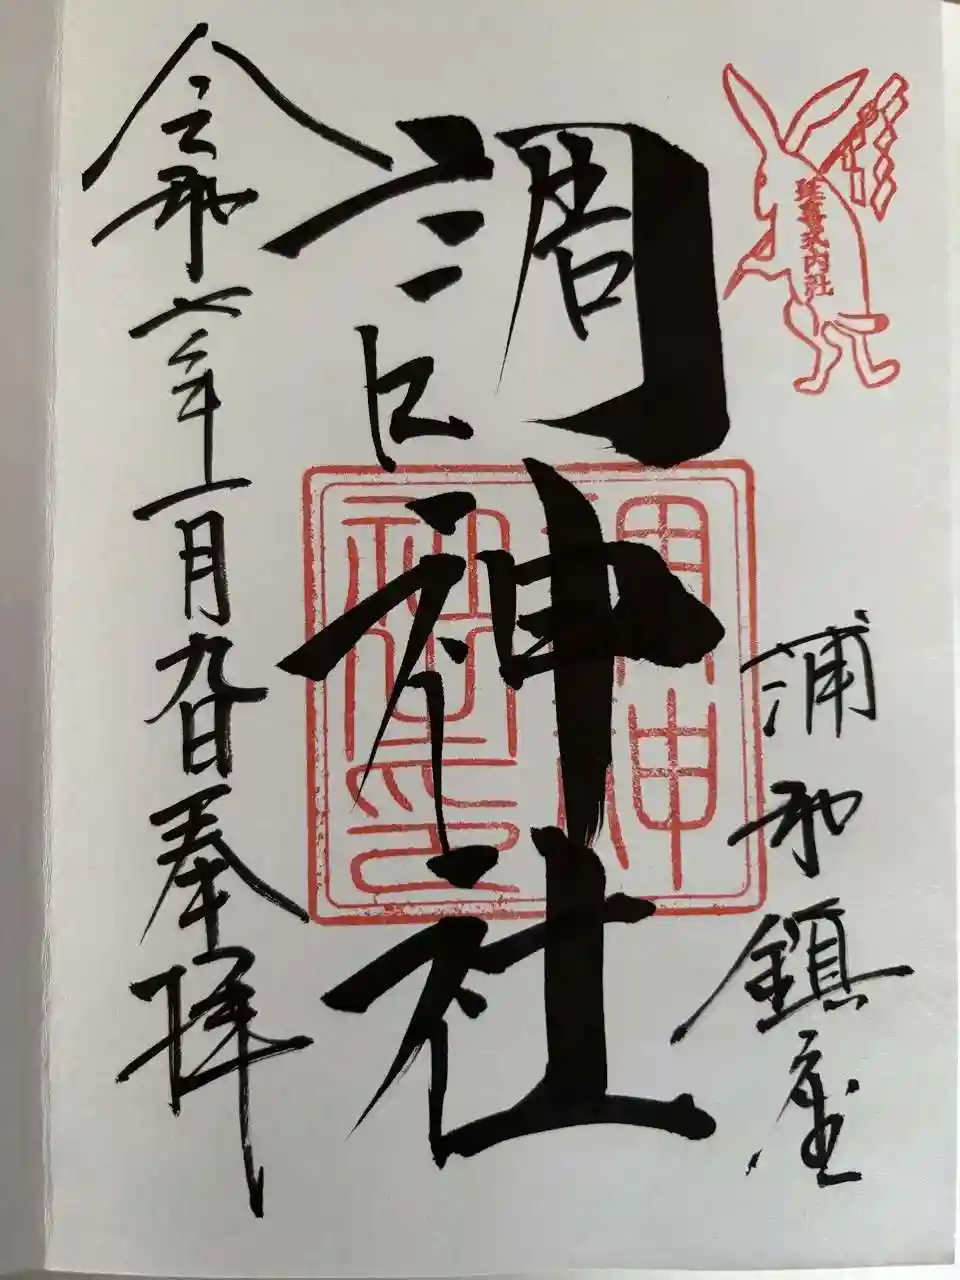 延喜式内社
浦和鎮座
調神社
調神
社之印
令和六年一月九日奉拝